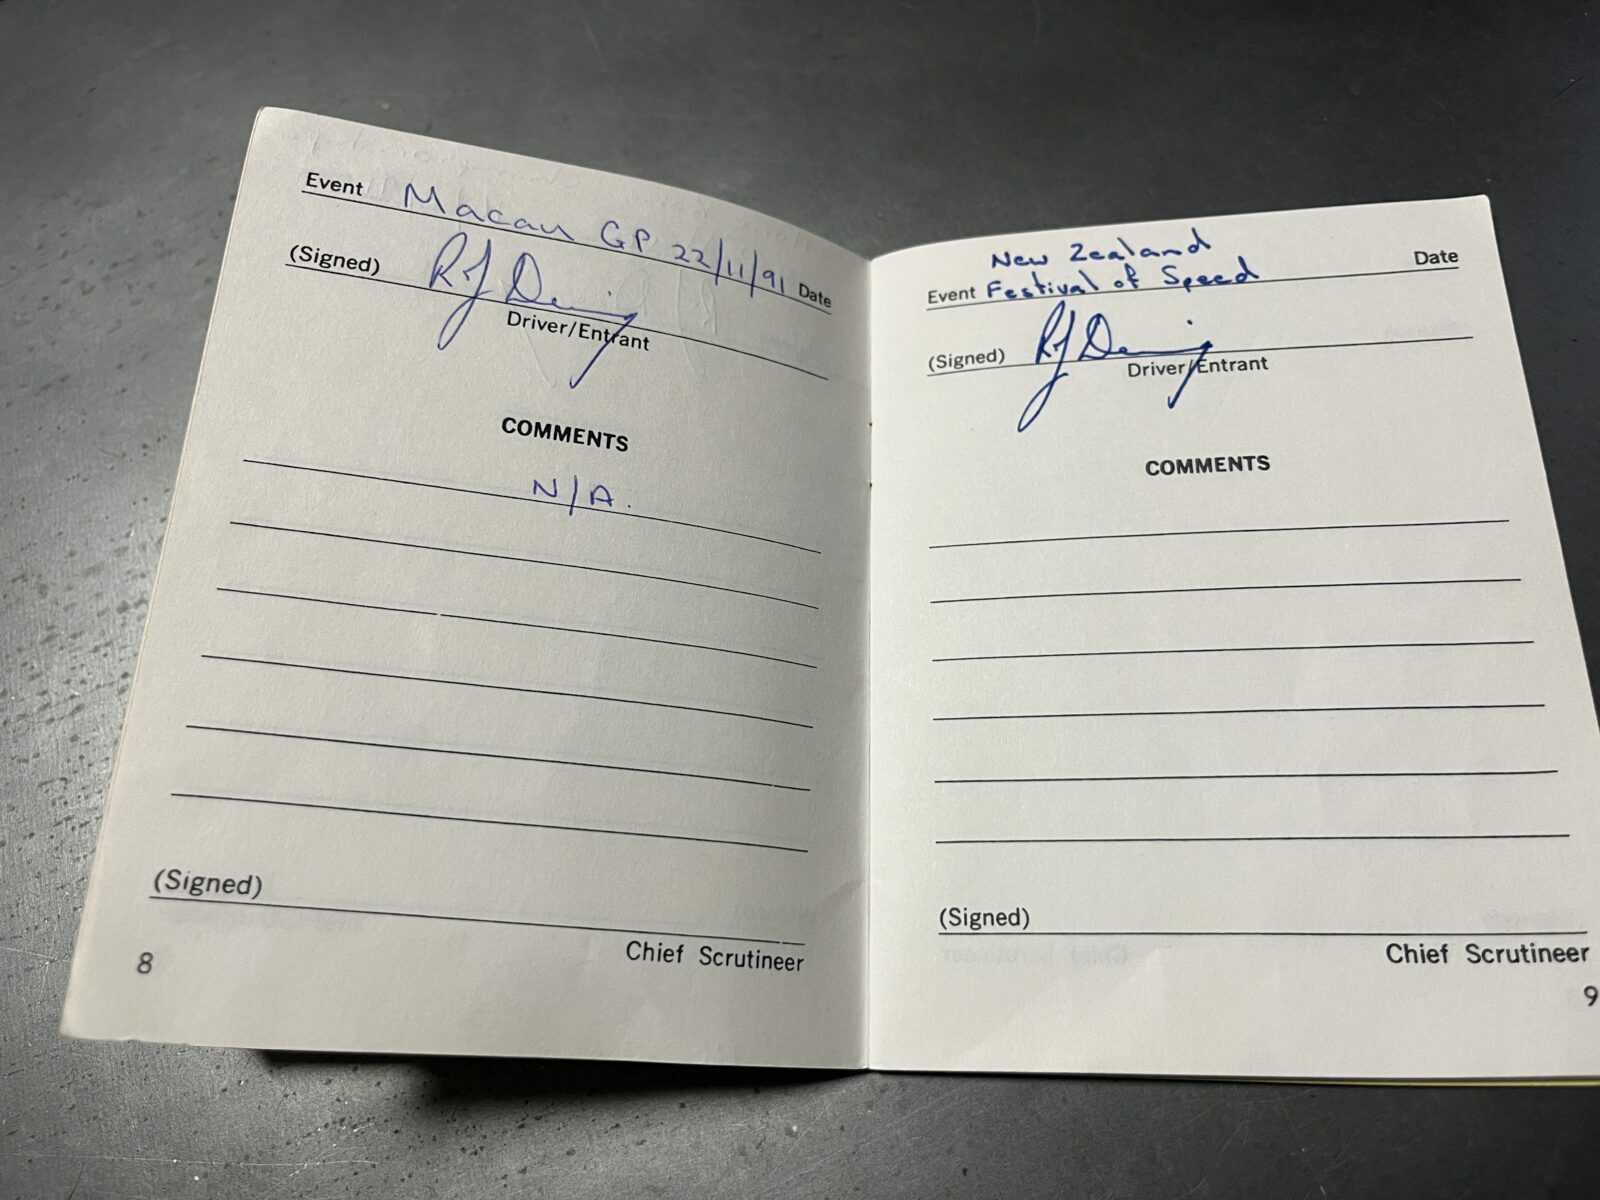 Event Macau GP 22/11/91 Date
(Signed)
Driver/Entrant
COMMENTS
N/A.
(Signed)
Chief Scrutineer
8
New Zealand
Event Festival of Speed Date
(Signed)
Driver/Entrant
COMMENTS
(Signed)
Chief Scrutineer
9